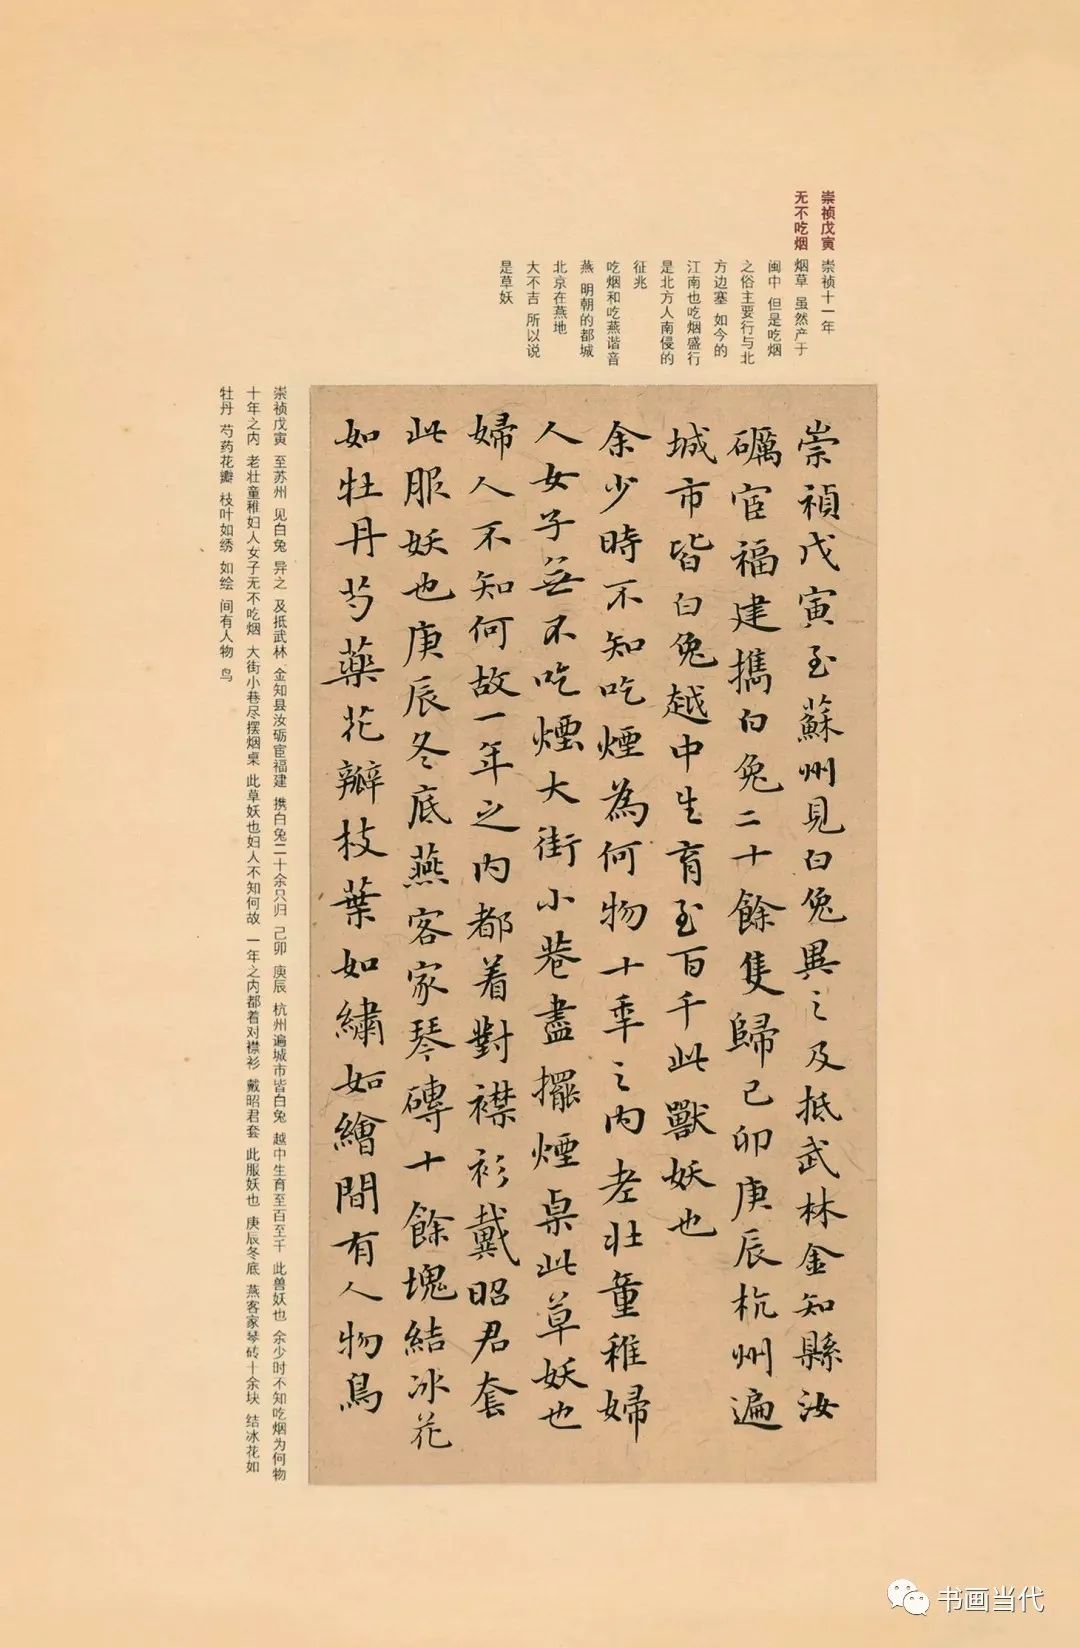 崇祯戊寅 崇祯十一年
无不吃烟 烟草 虽然产于
闽中 但是吃烟
之俗主要行与北
方边塞 如今的
江南也吃烟盛行
是北方人南侵的
征兆
吃烟和吃燕谐音
燕 明朝的都城
北京在燕地
大不吉 所以说
是草妖
崇禎戊寅至蘇州見白兔異之及抵武林金知縣汝
礪宦福建攜白兔二十餘隻歸己卯庚辰杭州遍
城市皆白兔越中生育至百千此獸妖也
余少時不知吃煙為何物十年之内老壯童稚婦
人女子無不吃煙大街小巷盡擺煙桌此草妖也
婦人不知何故一年之内都着對襟衫戴昭君套
此服妖也庚辰冬底燕客家琴磚十餘塊結冰花
如牡丹芍藥花瓣枝葉如繡如繪間有人物鳥
崇祯戊寅 至苏州 见白兔 异之 及抵武林 金知县汝砺宦福建 携白兔二十余只归 己卯 庚辰 杭州遍城市皆白兔 越中生育至百至千 此兽妖也 余少时不知吃烟为何物
十年之内 老壮童稚妇人女子无不吃烟 大街小巷尽摆烟桌 此草妖也妇人不知何故 一年之内都着对襟衫 戴昭君套 此服妖也 庚辰冬底 燕客家琴砖十余块 结冰花如
牡丹 芍药花瓣 枝叶如绣 如绘 间有人物 鸟
书画当代